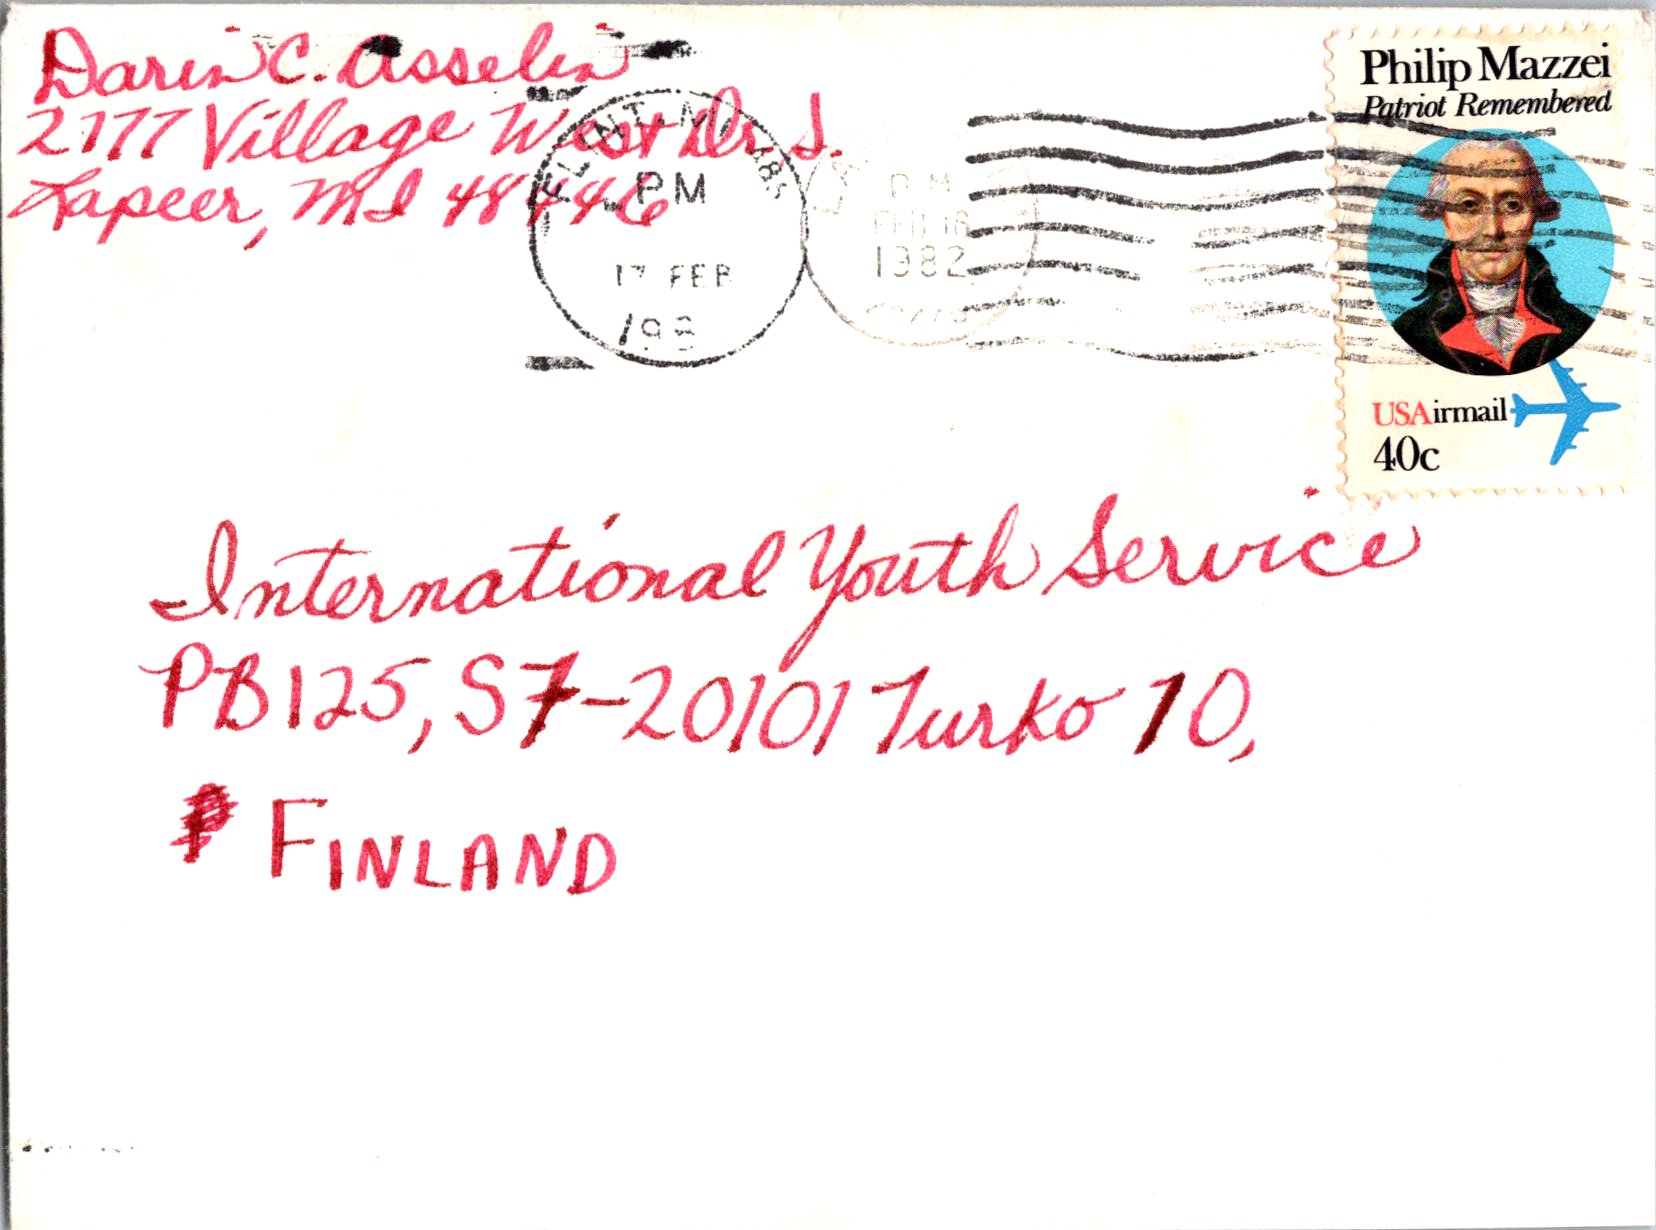 Darin C. Asselin
2177 Village West Dr. S.
Lapeer, MI 48446
FLINT, MI 485
PM
17 FEB
198
P.M
FEB 16
1982
Philip Mazzei
Patriot Remembered
USAirmail
40c
International Youth Service
PB 125, SF-20101 Turko 10,
FINLAND